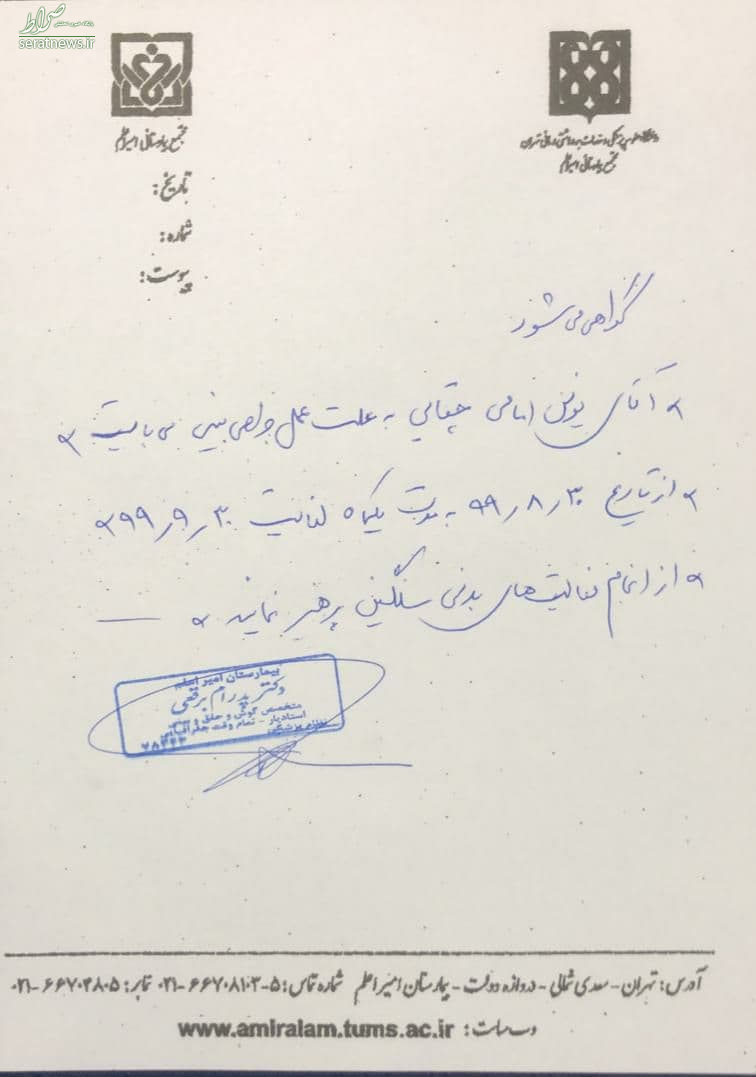 صراط
seratnews.ir
دانشگاه علوم پزشکی و خدمات بهداشتی درمانی تهران
مجتمع بیمارستانی امیراعلم
مجتمع بیمارستانی امیراعلم
تاریخ:
شماره:
پیوست:
گواهی می شود
آقای یونس امامی چقایی به علت عمل جراحی بینی می بایست
از تاریخ ۹۹/۸/۳۰ به مدت یکماه لغایت ۹۹/۹/۳۰
از انجام فعالیت های بدنی سنگین پرهیز نمایند
بیمارستان امیر اعلم
دکتر پدرام برقعی
متخصص گوش و حلق و بینی
استادیار - تمام وقت جغرافیایی
نظام پزشکی
آدرس: تهران - سعدی شمالی - دروازه دولت - بیمارستان امیراعلم شماره تماس: ۵-۶۶۷۰۸۱۰۳-۰۲۱ نمابر: ۶۶۷۰۴۸۰۵-۰۲۱
وب سایت: www.amiralam.tums.ac.ir